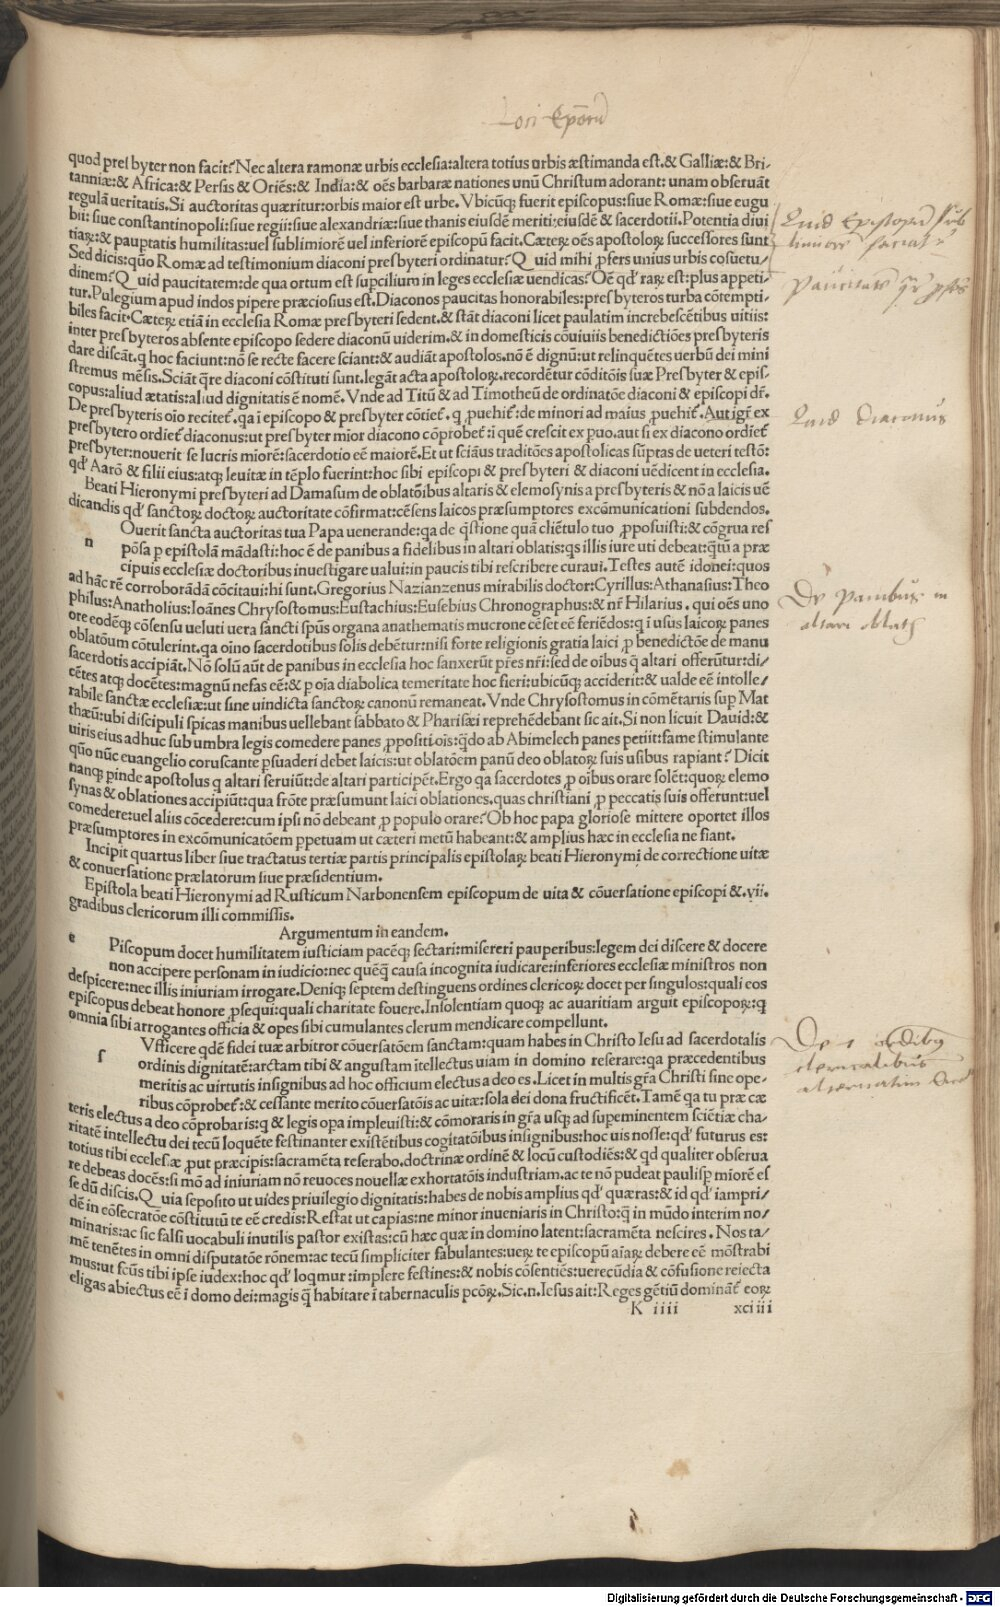 Loci Epōrū
quod presbyter non facit? Nec altera ramonæ urbis ecclesia: altera totius urbis æstimanda est. & Galliæ: & Bri-
tanniæ: & Africa: & Persis & Oriēs: & India: & oēs barbaræ nationes unū Christum adorant: unam obseruāt
regulā ueritatis. Si auctoritas quæritur: orbis maior est urbe. Vbicūq; fuerit episcopus: siue Romæ: siue eugu
bii: siue constantinopoli: siue regii: siue alexandriæ: siue thanis eiusdē meriti: eiusdē & sacerdotii. Potentia diui
tiaꝝ: & pauptatis humilitas: uel sublimiorē uel inferiorē episcopū facit. Cæteꝝ oēs apostoloꝝ successores sunt
Sed dicis: quō Romæ ad testimonium diaconi presbyteri ordinatur? Quid mihi ꝓfers unius urbis cōsuetu/
dinem? Quid paucitatem: de qua ortum est supcilium in leges ecclesiæ uendicas? Oē qd' raꝝ est: plus appeti-
tur. Pulegium apud indos pipere præciosius est. Diaconos paucitas honorabiles: presbyteros turba cōtempti-
biles facit. Cæteꝝ etiā in ecclesia Romæ presbyteri sedent. & stāt diaconi licet paulatim increbescētibus uitiis:
inter presbyteros absente episcopo sedere diaconū uiderim. & in domesticis cōuiuiis benedictiōes presbyteris
dare discāt. q hoc faciunt: nō se recte facere sciant: & audiāt apostolos. nō ē dignū: ut relinquētes uerbū dei mini
stremus mēsis. Sciāt q̄re diaconi cōstituti sunt. legāt acta apostoloꝝ. recordētur cōditōis suæ Presbyter & epis.
copus: aliud ætatis: aliud dignitatis ē nomē. Vnde ad Titū & ad Timotheū de ordinatōe diaconi & episcopi dr̄.
De presbyteris oīo recitet̄. qa i episcopo & presbyter cōtiet̄. q ꝓuehit̄: de minori ad maius ꝓuehit̄. Aut igr̄ ex
presbytero ordiet̄ diaconus: ut presbyter mior diacono cōprobet̄: ī quē crescit ex puo. aut si ex diacono ordiet̄
presbyter: nouerit se lucris miorē: sacerdotio eē maiorē. Et ut sciāus traditōes apostolicas sūptas de ueteri testō:
qd' Aarō & filii eius: atq; leuitæ in tēplo fuerint: hoc sibi episcopi & presbyteri & diaconi uēdicent in ecclesia.
Beati Hieronymi presbyteri ad Damasum de oblatōibus altaris & elemosynis a presbyteris & nō a laicis uē
dicandis qd' sanctoꝝ doctoꝝ auctoritate cōfirmat: cēsens laicos præsumptores excōmunicationi subdendos.
n Ouerit sancta auctoritas tua Papa uenerande: qa de q̄stione quā cliētulo tuo ꝓposuisti: & cōgrua res
pōsa p epistolā mādasti: hoc ē de panibus a fidelibus in altari oblatis: qs illis iure uti debeat: q̄tū a præ
cipuis ecclesiæ doctoribus inuestigare ualui: in paucis tibi rescribere curaui. Testes autē idonei: quos
ad hāc rē corroborādā cōcitaui: hi sunt. Gregorius Nazianzenus mirabilis doctor: Cyrillus: Athanasius: Theo
philus: Anatholius: Ioānes Chrysostomus: Eustachius: Eusebius Chronographus: & nr̄ Hilarius. qui oēs uno
ore eodēq; cōsensu ueluti uera sancti sp̄us organa anathematis mucrone cēset eē feriēdos: q ī usus laicoꝝ panes
oblatōum cōtulerint. qa oīno sacerdotibus solis debētur: nisi forte religionis gratia laici ꝓ benedictōe de manu
sacerdotis accipiāt. Nō solū aūt de panibus in ecclesia hoc sanxerūt pr̄es nr̄i: sed de oībus q̄ altari offerūtur: di/
cētes atq; docētes: magnū nefas eē: & p oīa diabolica temeritate hoc fieri: ubicūq; acciderit: & ualde eē intolle/
rabile sanctæ ecclesiæ: ut sine uindicta sanctoꝝ canonū remaneat. Vnde Chrysostomus in cōmētariis sup Mat
thæū: ubi discipuli spicas manibus uellebant sabbato & Pharisæi reprehēdebant sic ait. Si non licuit Dauid: &
uiris eius adhuc sub umbra legis comedere panes ꝓpositiōis: q̄do ab Abimelech panes petiit: fame stimulante
quō nūc euangelio coruscante ꝑsuaderi debet laicis: ut oblatōem panū deo oblatoꝝ suis usibus rapiant? Dicit
nanq; pinde apostolus q altari seruiūt: de altari participēt. Ergo qa sacerdotes ꝓ oībus orare solēt: quoꝝ elemo
synas & oblationes accipiūt: qua frōte præsumunt laici oblationes. quas christiani ꝓ peccatis suis offerunt: uel
comedere: uel aliis cōcedere: cum ipsi nō debeant ꝓ populo orare? Ob hoc papa gloriose mittere oportet illos
præsumptores in excōmunicatōem ppetuam ut cæteri metū habeant: & amplius hæc in ecclesia ne fiant.
Incipit quartus liber siue tractatus tertiæ partis principalis epistolaꝝ beati Hieronymi de correctione uitæ
& conuersatione prælatorum siue præsidentium.
Epistola beati Hieronymi ad Rusticum Narbonensem episcopum de uita & cōuersatione episcopi &. vii.
gradibus clericorum illi commissis.
Argumentum in eandem.
e Piscopum docet humilitatem iusticiam pacēq; sectari: misereri pauperibus: legem dei discere & docere
non accipere personam in iudicio: nec quēq̄ causa incognita iudicare: inferiores ecclesiæ ministros non
despicere: nec illis iniuriam irrogare. Deniq; septem destinguens ordines clericoꝝ docet per singulos: quali eos
episcopus debeat honore ꝓsequi: quali charitate fouere. Insolentiam quoq; ac auaritiam arguit episcopoꝝ: q
omnia sibi arrogantes officia & opes sibi cumulantes clerum mendicare compellunt.
s Vfficere qdē fidei tuæ arbitror cōuersatōem sanctam: quam habes in Christo Iesu ad sacerdotalis
ordinis dignitatē: arctam tibi & angustam itellectus uiam in domino reserare: qa præcedentibus
meritis ac uirtutis insignibus ad hoc officium electus a deo es. Licet in multis gr̄a Christi sine ope-
ribus cōprobet̄: & cessante merito cōuersatōis ac uitæ: sola dei dona fructificēt. Tamē qa tu præ cæ
teris electus a deo cōprobaris: q & legis opa impleuisti: & cōmoraris in gr̄a usq; ad supeminentem sciētiæ cha-
ritatē intellectu dei tecū loquēte festinanter existētibus cogitatōibus insignibus: hoc uis nosse: qd' futurus es:
totius tibi ecclesiæ ꝓut præcipis: sacramēta reserabo. doctrinæ ordinē & locū custodiēs: & qd qualiter obserua
re debeas docēs: si mō ad iniuriam nō reuoces nouellæ exhortatōis industriam. ac te nō pudeat paulisp miorē es
se dū discis. Quia seposito ut uides priuilegio dignitatis: habes de nobis amplius qd' quæras: & id qd' iampri/
dē in cōsecratōe cōstitutū te eē credis: Restat ut capias: ne minor inueniaris in Christo: q̄ in mūdo interim no/
minaris: ac sic falsi uocabuli inutilis pastor existas: cū hæc quæ in domino latent: sacramēta nescires. Nos ta/
mē tenētes in omni disputatōe rōnem: ac tecū simpliciter fabulantes: ueꝝ te episcopū aīaꝝ debere eē mōstrabi
mus: ut fcūs tibi ipse iudex: hoc qd' loqmur: implere festines: & nobis cōsentiēs: uerecūdia & cōfusione reiecta
eligas abiectus eē i domo dei: magis q̄ habitare i tabernaculis pcōꝝ. Sic. n. Iesus ait: Reges gētiū dominat̄ eoꝝ
K iiii xciiii
Quid Episcopū sub
limiorē faciat
Paucitatē
Quid diaconus
De Panibus in
altari oblatis
De ordībus
clericalibus
Digitalisierung gefördert durch die Deutsche Forschungsgemeinschaft - DFG